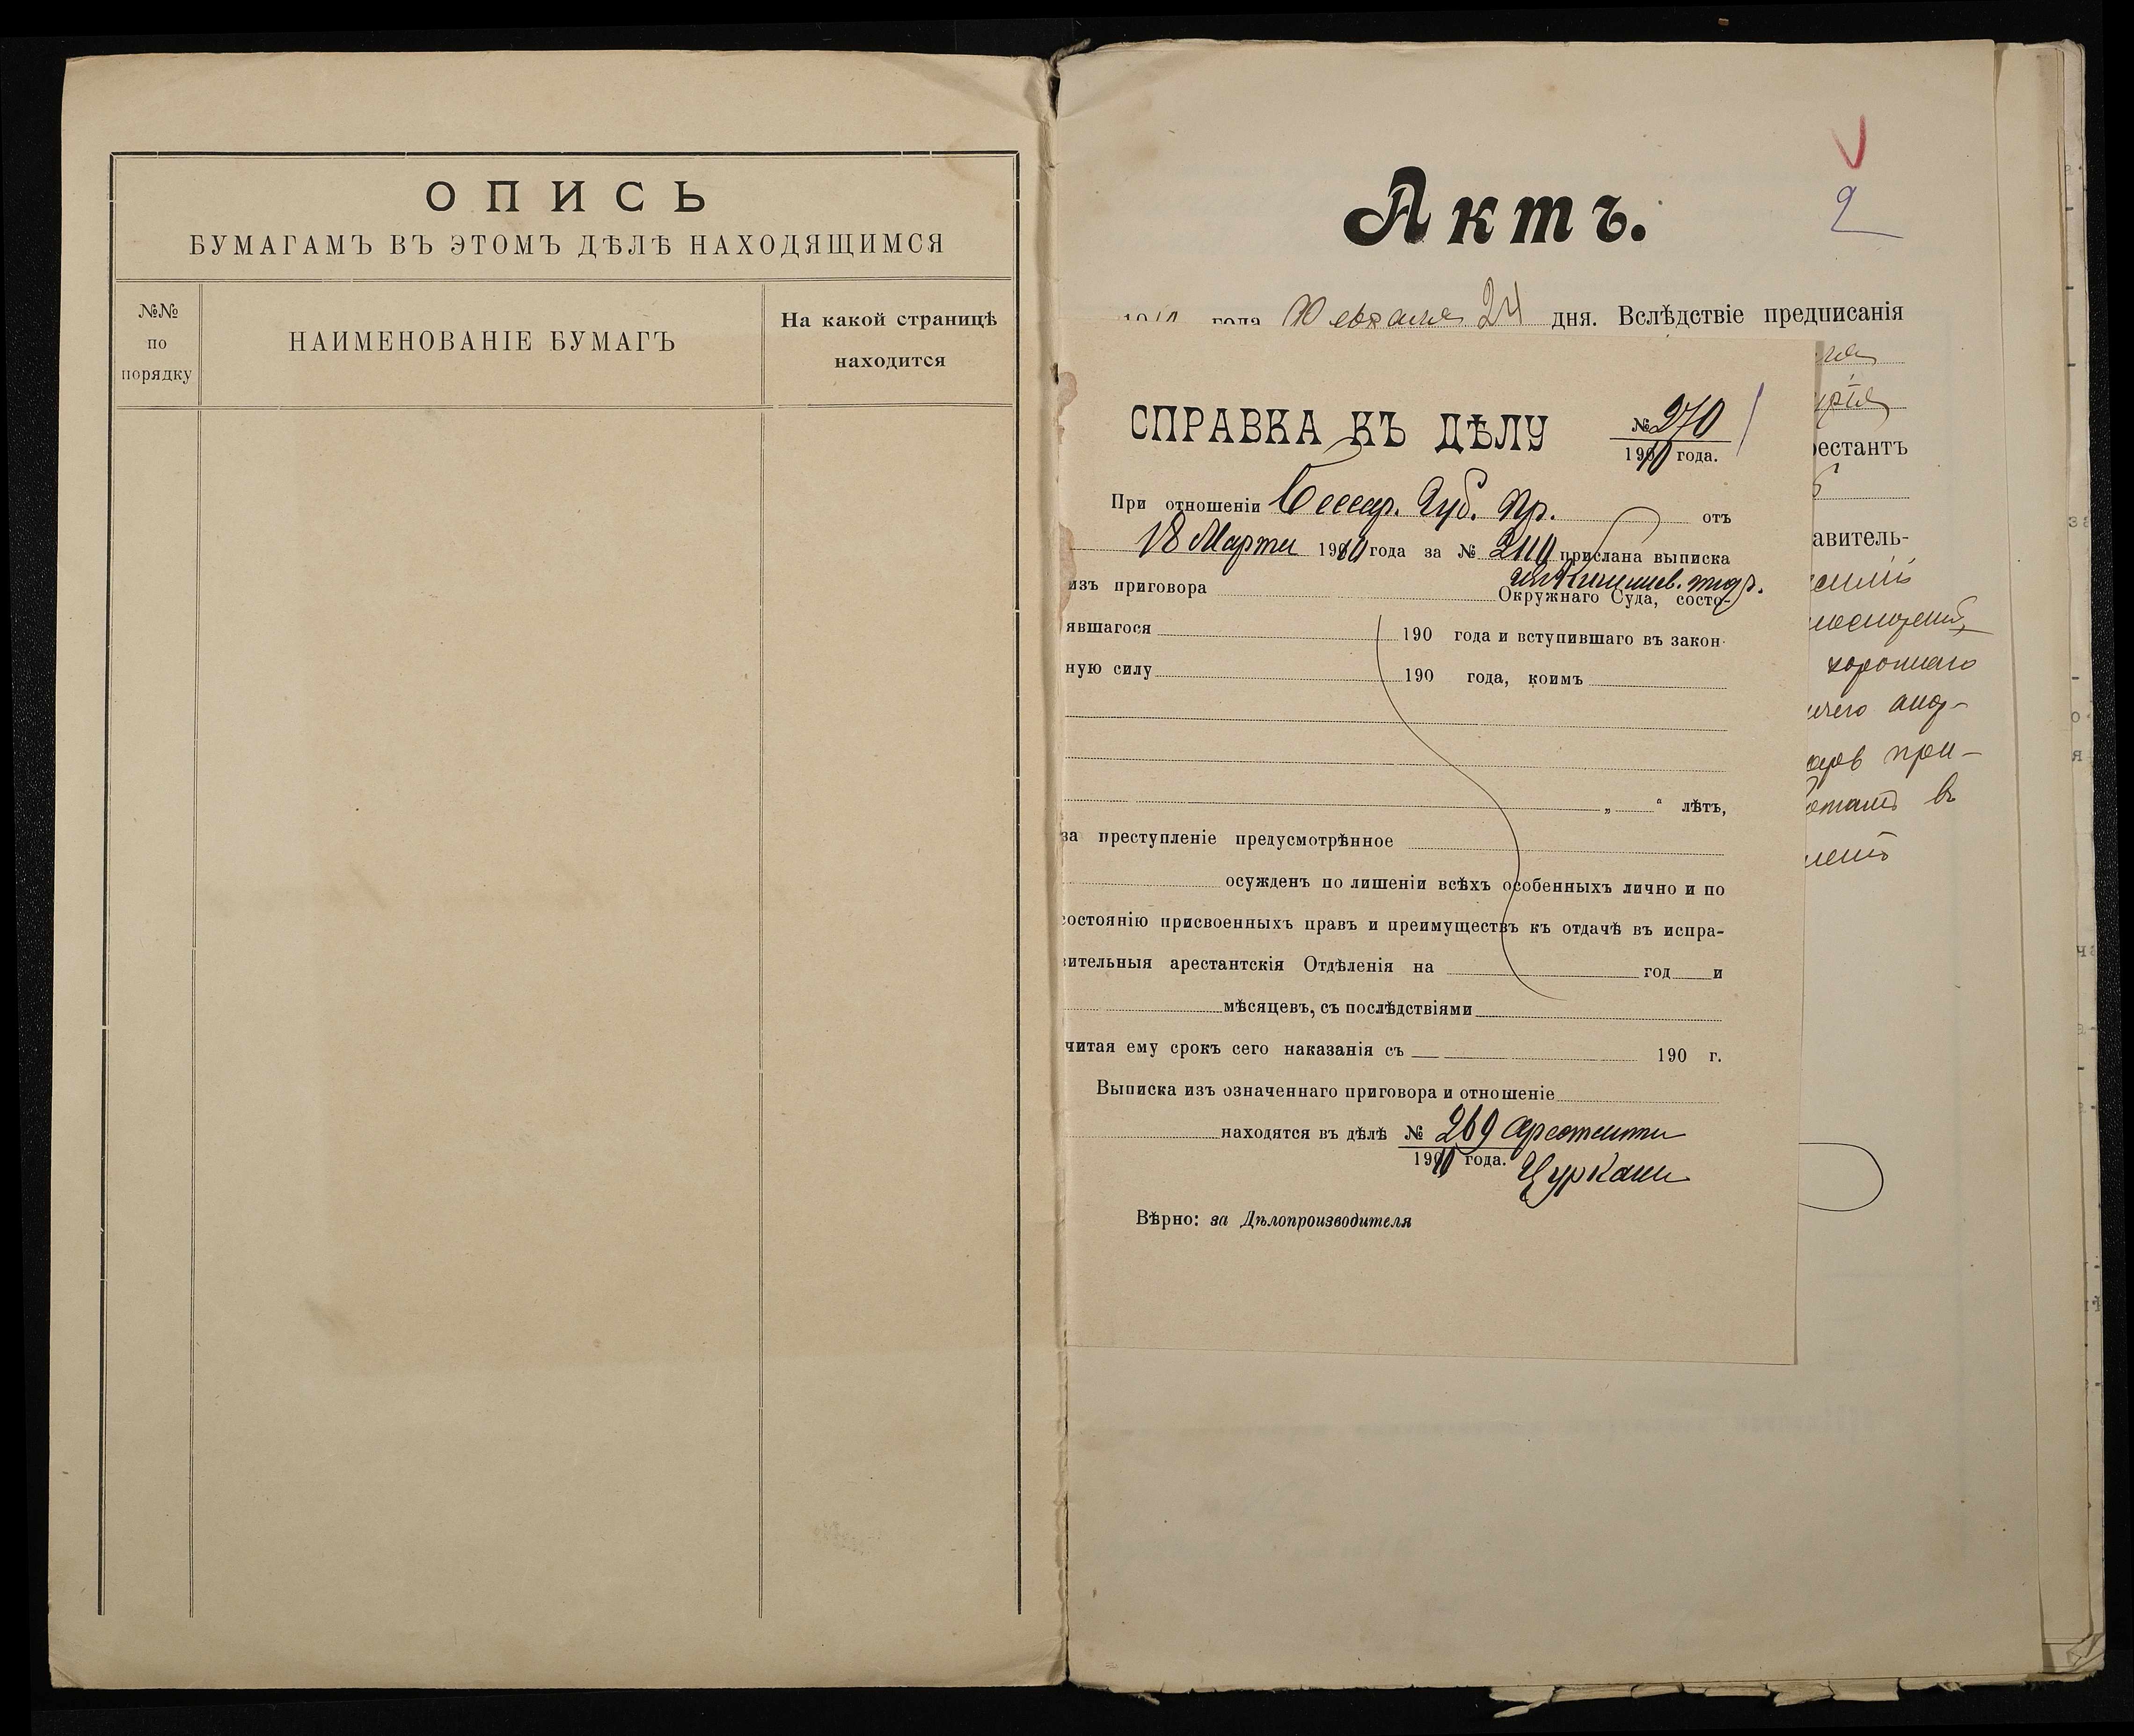 ОПИСЬ
БУМАГАМЪ ВЪ ЭТОМЪ ДѢЛѢ НАХОДЯЩИМСЯ
№№
по
порядку
НАИМЕНОВАНІЕ БУМАГЪ
На какой страницѣ
находится
2
Актъ.
1910 года Февраля 24 дня. Вслѣдствіе предписанія
СПРАВКА КЪ ДѢЛУ № 270
1910 года.
При отношеніи Бессар. Губ. Пр. отъ
18 Марта 1910 года за № 2110 прислана выписка
изъ приговора Окружнаго Суда, состо-
явшагося 190 года и вступившаго въ закон-
ную силу 190 года, коимъ
„ “ лѣтъ,
за преступленіе предусмотрѣнное
осужденъ по лишеніи всѣхъ особенныхъ лично и по
состоянію присвоенныхъ правъ и преимуществъ къ отдачѣ въ испра-
вительныя арестантскія Отдѣленія на год и
мѣсяцевъ, съ послѣдствіями
читая ему срокъ сего наказанія съ 190 г.
Выписка изъ означеннаго приговора и отношеніе
находятся въ дѣлѣ № 269 арестанта
1910 года. Цуркана
Вѣрно: за Дѣлопроизводителя
рестантъ
авитель-
хорошаго